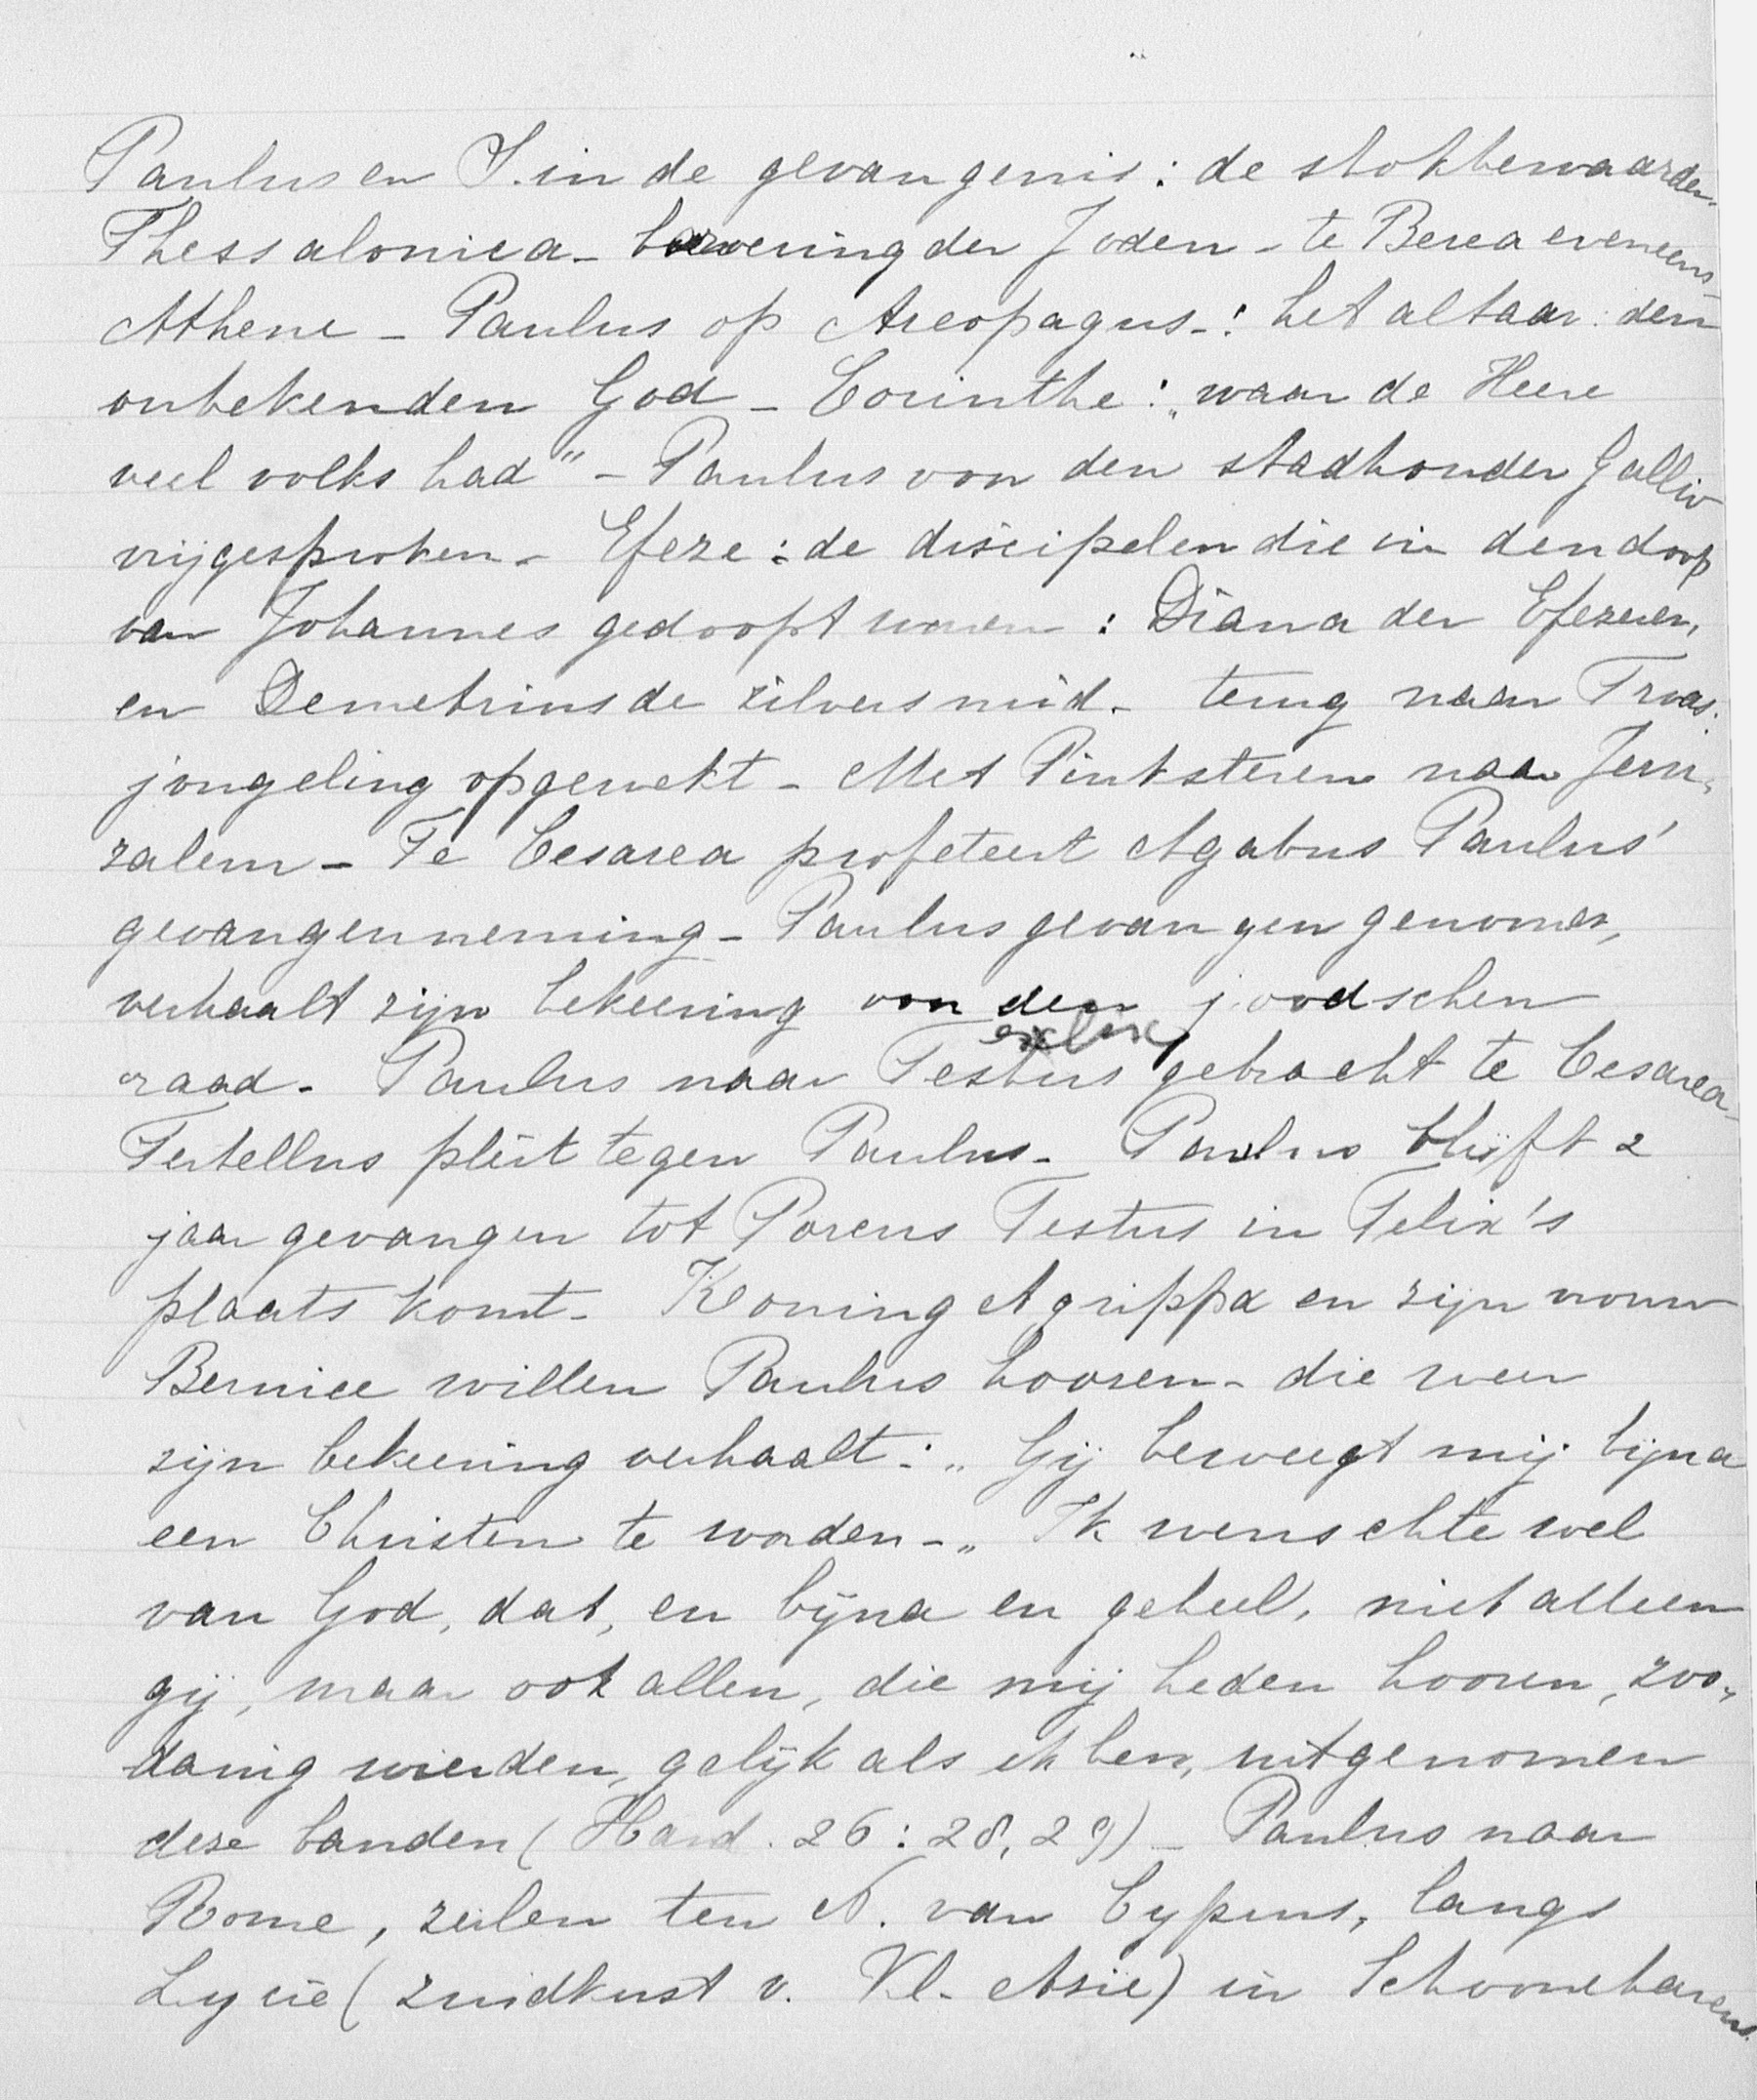 Paulus en S. in de gevangenis : de stokbewaarder.
Thessalonica - beroering der Joden - te Berea eveneens -
Athene - Paulus op Areopagus - : het altaar : den
onbekenden God - Corinthe : „waar de Heere
veel volks had" - Paulus voor den stadhouder Gallio
vrijgesproken - Efeze : de discipelen die in den doop
van Johannes gedoopt waren : Diana der Efezieren,
en Demetrius de zilversmid - terug naar Troas.
jongeling opgewekt - Met Pinksteren naar Jeru-
zalem - Te Cesarea profeteert Agabus Paulus'
gevangenneming - Paulus gevangen genomen,
verhaalt zijn bekeering voor den joodschen
elix
raad - Paulus naar Festus gebracht te Cesarea -
Tertellus pleit tegen Paulus - Paulus blijft 2
jaar gevangen tot Porcus Festus in Felix's
plaats komt - Koning Agrippa en zijn vrouw
Bernice willen Paulus hooren - die weer
zijn bekeering verhaalt : „Gij beweegt mij bijna
een Christen te worden - „Ik wenschte wel
van God, dat, en bijna en geheel, niet alleen
gij, maar ook allen, die mij heden hooren, zoo-
danig wierden, gelijk als ik ben, uitgenomen
deze banden (Hand. 26 : 28, 29) - Paulus naar
Rome, zeilen ten N. van Cyprus, langs
Lycië (zuidkust v. Kl. Asië) in Schoonehavens.